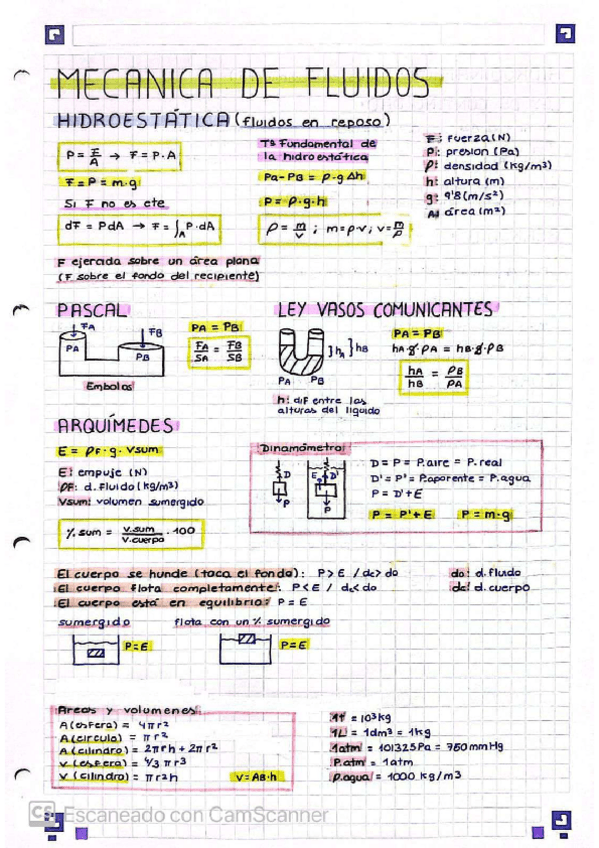 MECANICA DE FLUIDOS
HIDROESTÁTICA (fluidos en reposo)
P = F/A → F = P·A
F = P = m·g
Si F no es cte
dF = PdA → F = ∫A P·dA
Tª Fundamental de
la hidroestática
PA-PB = ρ·g Δh
P = ρ·g·h
ρ = m/v ; m=ρ·v; v=m/ρ
F: fuerza (N)
P: presion (Pa)
ρ: densidad (kg/m³)
h: altura (m)
g: 9'8 (m/s²)
A: área (m²)
F ejercida sobre un área plana
(F sobre el fondo del recipiente)
PASCAL
FA
FB
PA
PB
Embolos
PA = PB
FA/SA = FB/SB
LEY VASOS COMUNICANTES
hA
hB
PA PB
h: dif entre las
alturas del liquido
PA = PB
hA·g·ρA = hB·g·ρB
hA/hB = ρB/ρA
ARQUÍMEDES
E = ρF·g·Vsum
E: empuje (N)
ρF: d. Fluido (kg/m³)
Vsum: volumen sumergido
% sum = v.sum/v.cuerpo · 100
Dinamómetro
D
P
E
D'
P
D = P = P.aire = P.real
D' = P' = P.aparente = P.agua
P = D'+E
P = P'+E P = m·g
El cuerpo se hunde (toca el fondo): P > E / dc > do
El cuerpo flota completamente: P < E / dc < do
El cuerpo está en equilibrio: P = E
do: d. fluido
dc: d. cuerpo
sumergido flota con un % sumergido
P = E
P = E
Areas y volumenes
A (esfera) = 4πr²
A (circulo) = πr²
A (cilindro) = 2πrh + 2πr²
V (esfera) = 4/3 πr³
V (cilindro) = πr²h V = AB·h
1t = 10³kg
1L = 1dm³ = 1kg
1atm = 101325Pa = 760mmHg
P.atm = 1atm
ρ.agua = 1000 kg/m³
CS Escaneado con CamScanner